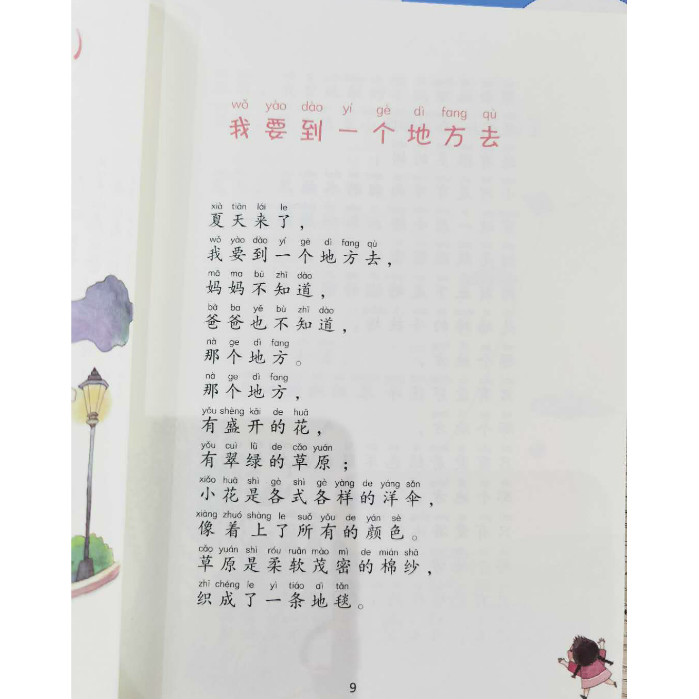 wǒ yào dào yí gè dì fang qù
我要到一个地方去
xià tiān lái le
夏天来了，
wǒ yào dào yí gè dì fang qù
我要到一个地方去，
mā ma bù zhī dào
妈妈不知道，
bà ba yě bù zhī dào
爸爸也不知道，
nà ge dì fang
那个地方。
nà ge dì fang
那个地方，
yǒu shèng kāi de huā
有盛开的花，
yǒu cuì lǜ de cǎo yuán
有翠绿的草原；
xiǎo huā shì gè shì gè yàng de yáng sǎn
小花是各式各样的洋伞，
xiàng zhuó shàng le suǒ yǒu de yán sè
像着上了所有的颜色。
cǎo yuán shì róu ruǎn mào mì de mián shā
草原是柔软茂密的棉纱，
zhī chéng le yì tiáo dì tǎn
织成了一条地毯。
9